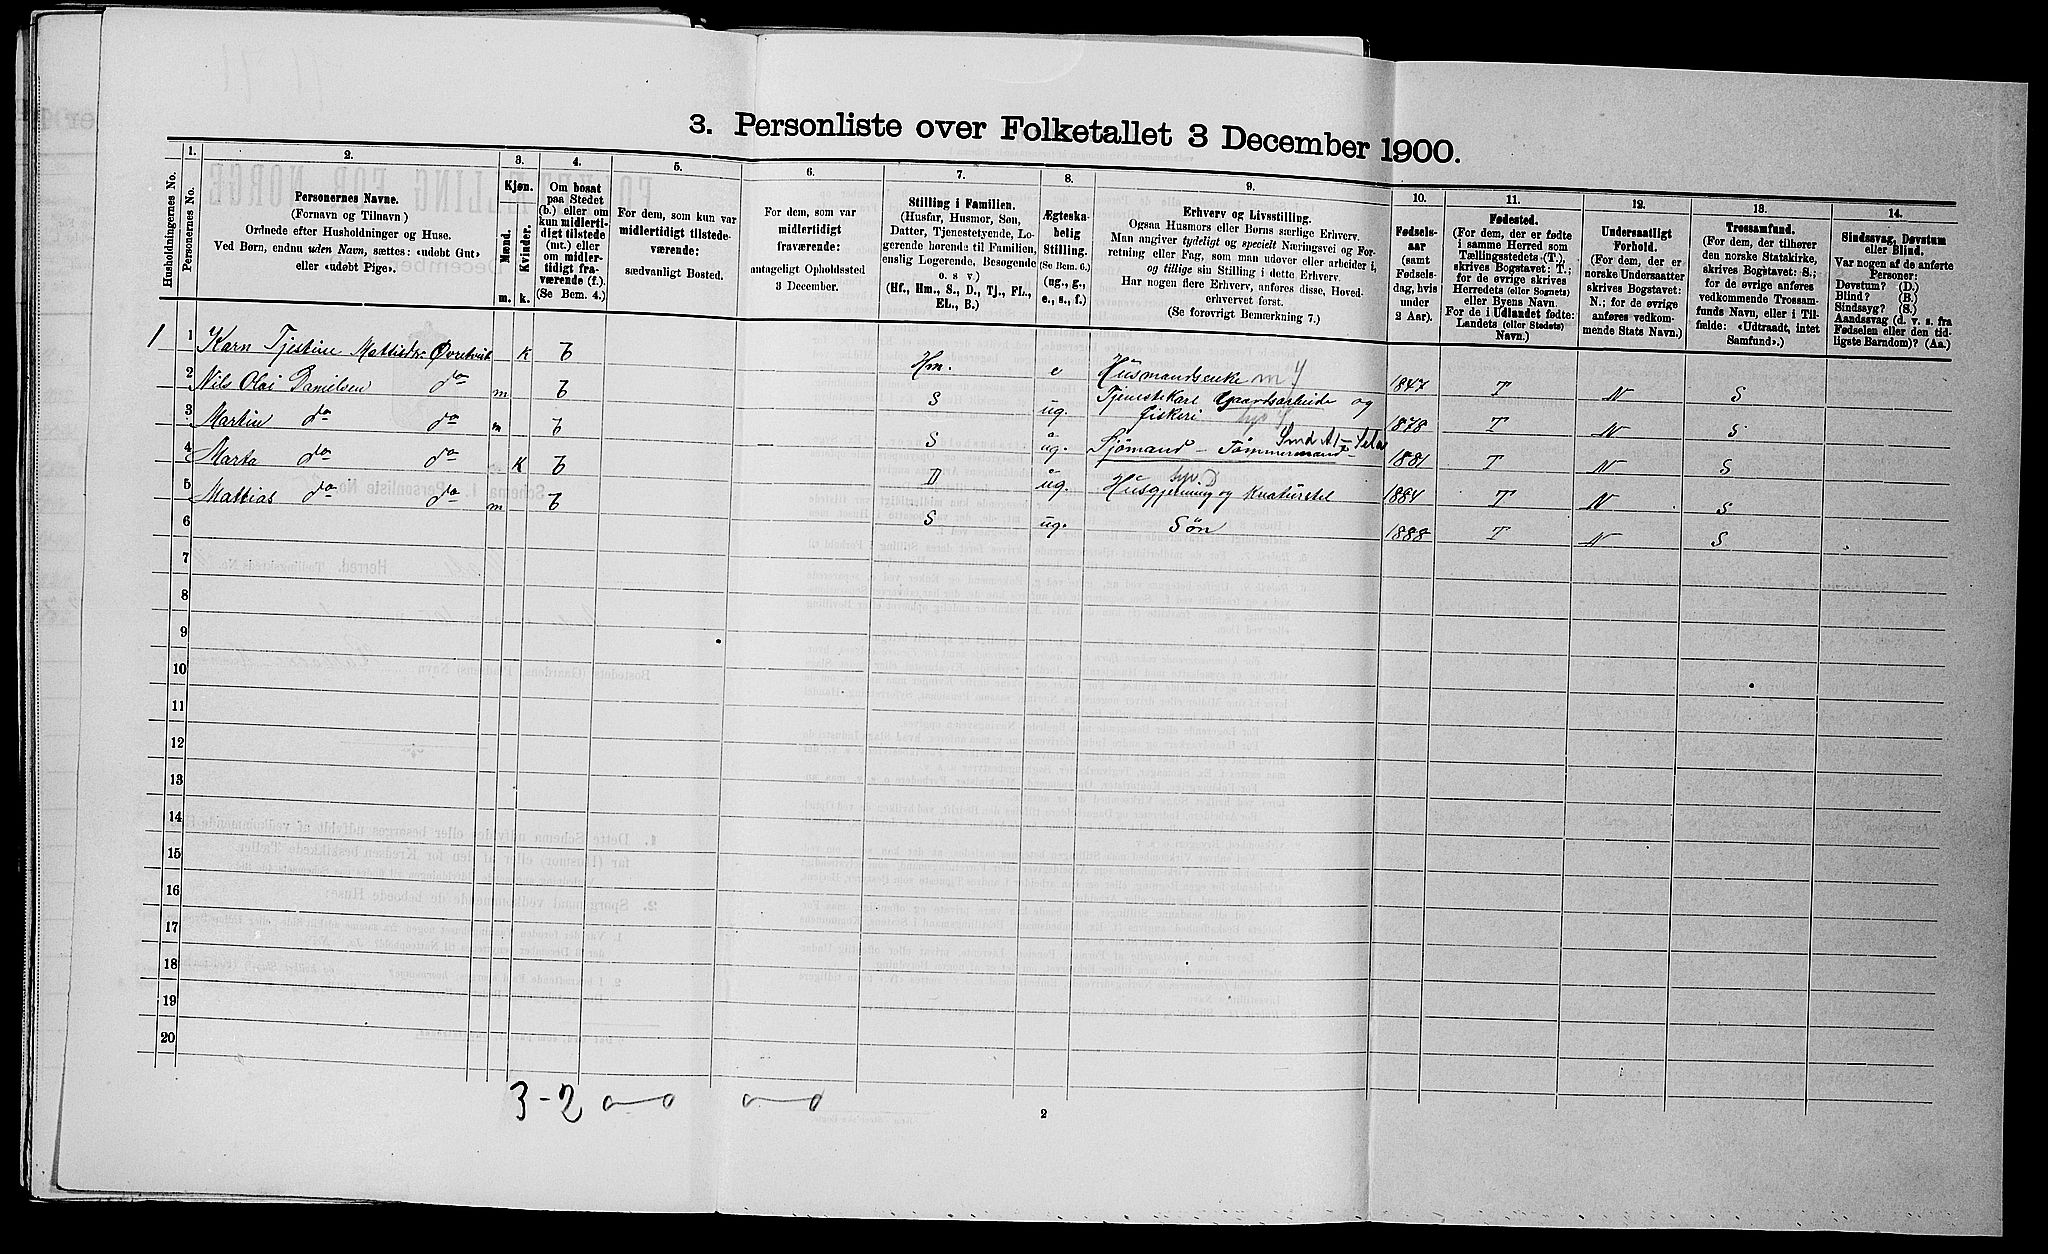 3. Personliste over Folketallet 3 December 1900.
Husholdningernes No.
1.
Personernes No.
2.
Personernes Navne.
(Fornavn og Tilnavn)
Ordnede efter Husholdninger og Huse.
Ved Børn, endnu uden Navn, sættes: «udøbt Gut»
eller «udøbt Pige».
3.
Kjøn.
Mænd.
Kvinder.
m.
k.
4.
Om bosat
paa Stedet
(b.) eller om
kun midlerti-
digt tilstede
(mt.) eller
om midler-
tidigt fra-
værende (f.).
(Se Bem. 4.)
5.
For dem, som kun var
midlertidigt tilstede-
værende:
sædvanligt Bosted.
6.
For dem, som var
midlertidigt
fraværende:
antageligt Opholdssted
3 December.
7.
Stilling i Familien.
(Husfar, Husmor, Søn,
Datter, Tjenestetyende, Lo-
gerende hørende til Familien,
enslig Logerende, Besøgende
o. s. v.)
(Hf., Hm., S., D., Tj., FL.,
EL., B.)
8.
Ægteska-
belig
Stilling.
(Se Bem. 6.)
(ug., g.,
e., s., f.)
9.
Erhverv og Livsstilling.
Ogsaa Husmors eller Børns særlige Erhverv.
Man angiver tydeligt og specielt Næringsvei og For-
retning eller Fag, som man udover eller arbeider i,
og tillige sin Stilling i dette Erhverv.
Har nogen flere Erhverv, anføres disse, Hoved-
erhvervet først.
(Se forøvrigt Bemærkning 7.)
10.
Fødsels-
aar
(samt
Fødsels-
dag, hvis
under
2 Aar).
11.
Fødested.
(For dem, der er fødte
i samme Herred som
Tællingsstedets (T.),
skrives Bogstavet: T.;
for de øvrige skrives
Herredets (eller Sognets)
eller Byens Navn.
For de i Udlandet fødte:
Landets (eller Stedets)
Navn.)
12.
Undersaatligt
Forhold.
(For dem, der er
norske Undersaatter
skrives Bogstavet:
N.; for de øvrige
anføres vedkom-
mende Stats Navn.)
13.
Trossamfund.
(For dem, der tilhører
den norske Statskirke,
skrives Bogstavet: S.;
for de øvrige anføres
vedkommende Trossam-
funds Navn, eller i Til-
fælde: «Udtraadt, intet
Samfund».)
14.
Sindssvag, Døvstum
eller Blind.
Var nogen af de anførte
Personer:
Døvstum? (D.)
Blind? (B.)
Sindssyg? (S.)
Aandssvag (d. v. s. fra
Fødselen eller den tid-
ligste Barndom)? (Aa.)
1 1 Karn Tjestine Mattisdtr. Øvretveit k b Hm. e Husmandsenke 1847 T N S
2 Nils Olai Danielsen do m b S ug. Tjenestekarl Gaardsarbeide og
fiskeri 1878 T N S
3 Martin do do m b S ug. Sjømand – Tømmermand 1881 T N S
4 Marta do do k b D ug. Husgjerning og Kreaturstel 1884 T N S
5 Mattias do do m b S ug. Søn 1888 T N S
6
7
8
9
10
11
12
13
14
15
16
17
18
19
20
3-2
2